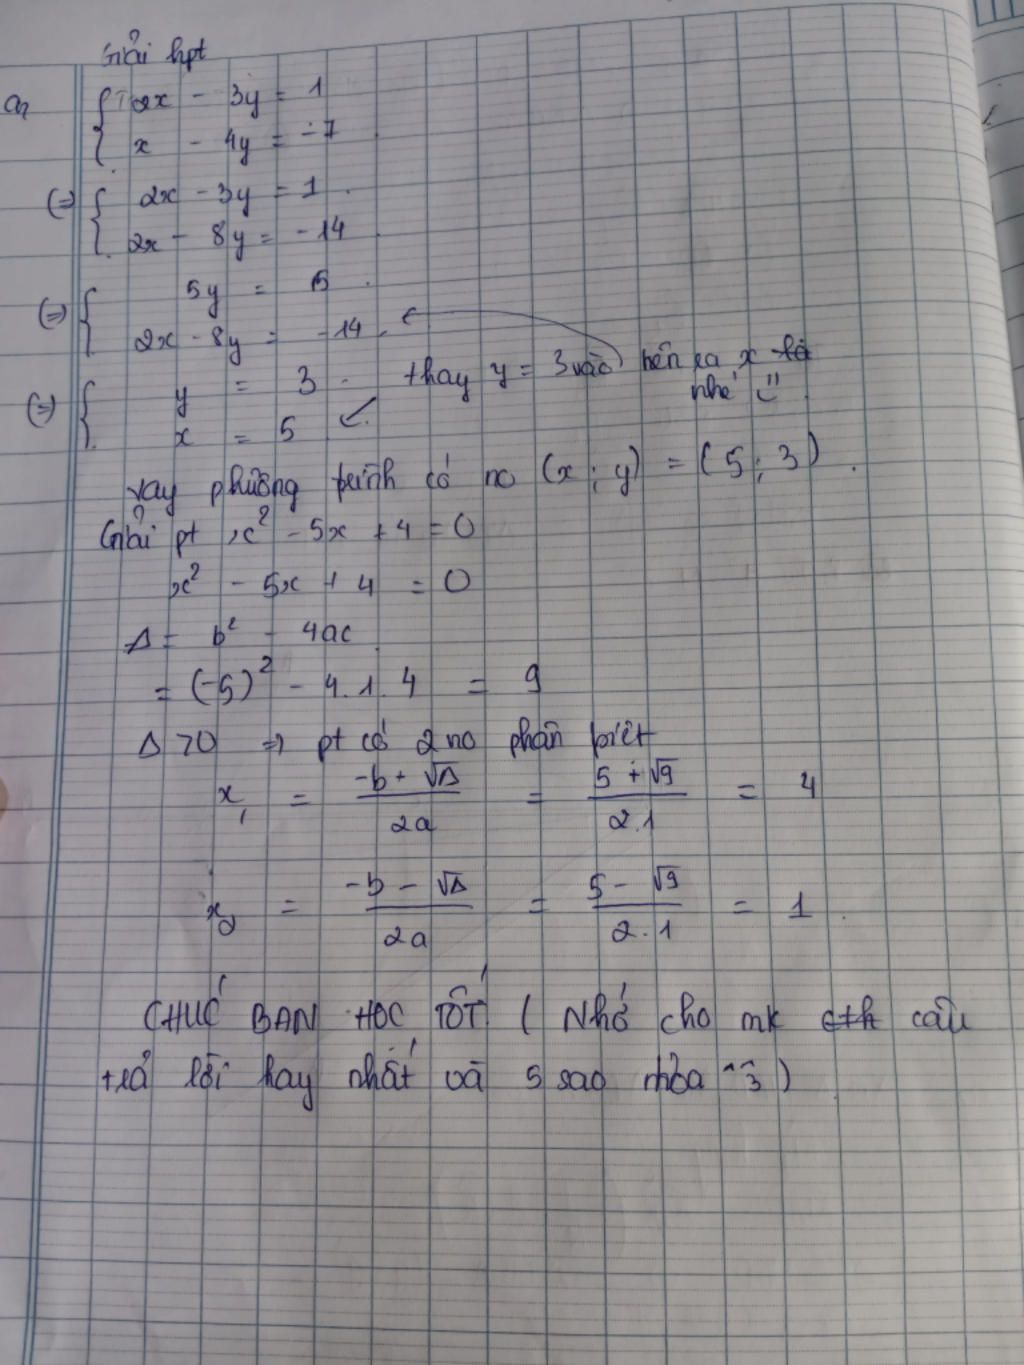 Giải hpt
a, { 2x - 3y = 1
x - 4y = -7
(=) { 2x - 3y = 1
2x - 8y = -14
(=) { 5y = 15
2x - 8y = -14
(=) { y = 3 thay y = 3 vào nên ra x
x = 5 nhé
Vay phường trình có no (x ; y) = (5 ; 3) .
Giải pt x² - 5x + 4 = 0
x² - 5x + 4 = 0
Δ = b² - 4ac
= (-5)² - 4.1.4 = 9
Δ > 0 => pt có 2 no phân biệt
x₁ = (-b + √Δ)/(2a) = (5 + √9)/(2.1) = 4
x₂ = (-b - √Δ)/(2a) = (5 - √9)/(2.1) = 1
CHÚC BAN HOC TỐT ( Nhớ cho mk câu
trả lời hay nhất và 5 sao nhòa ^3 )